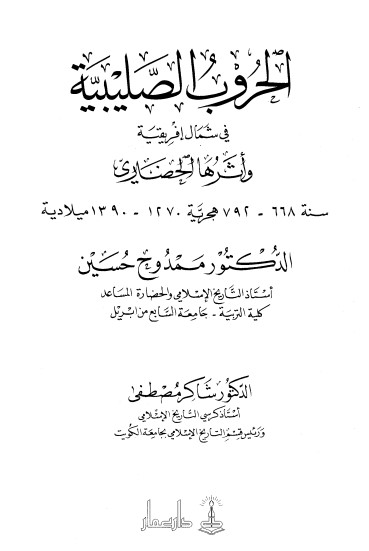 الحروب الصليبية
في شمال إفريقية
وأثرها الحضاري
سنة ٦٦٨ - ٧٩٢ هجرية ١٢٧٠ - ١٣٩٠ ميلادية
الدكتور ممدوح حسين
أستاذ التاريخ الإسلامي والحضارة المساعد
كلية التربية - جامعة السابع من ابريل
الدكتور شاكر مصطفى
أستاذ كرسي التاريخ الإسلامي
ورئيس قسم التاريخ الإسلامي بجامعة الكويت
دار عمار